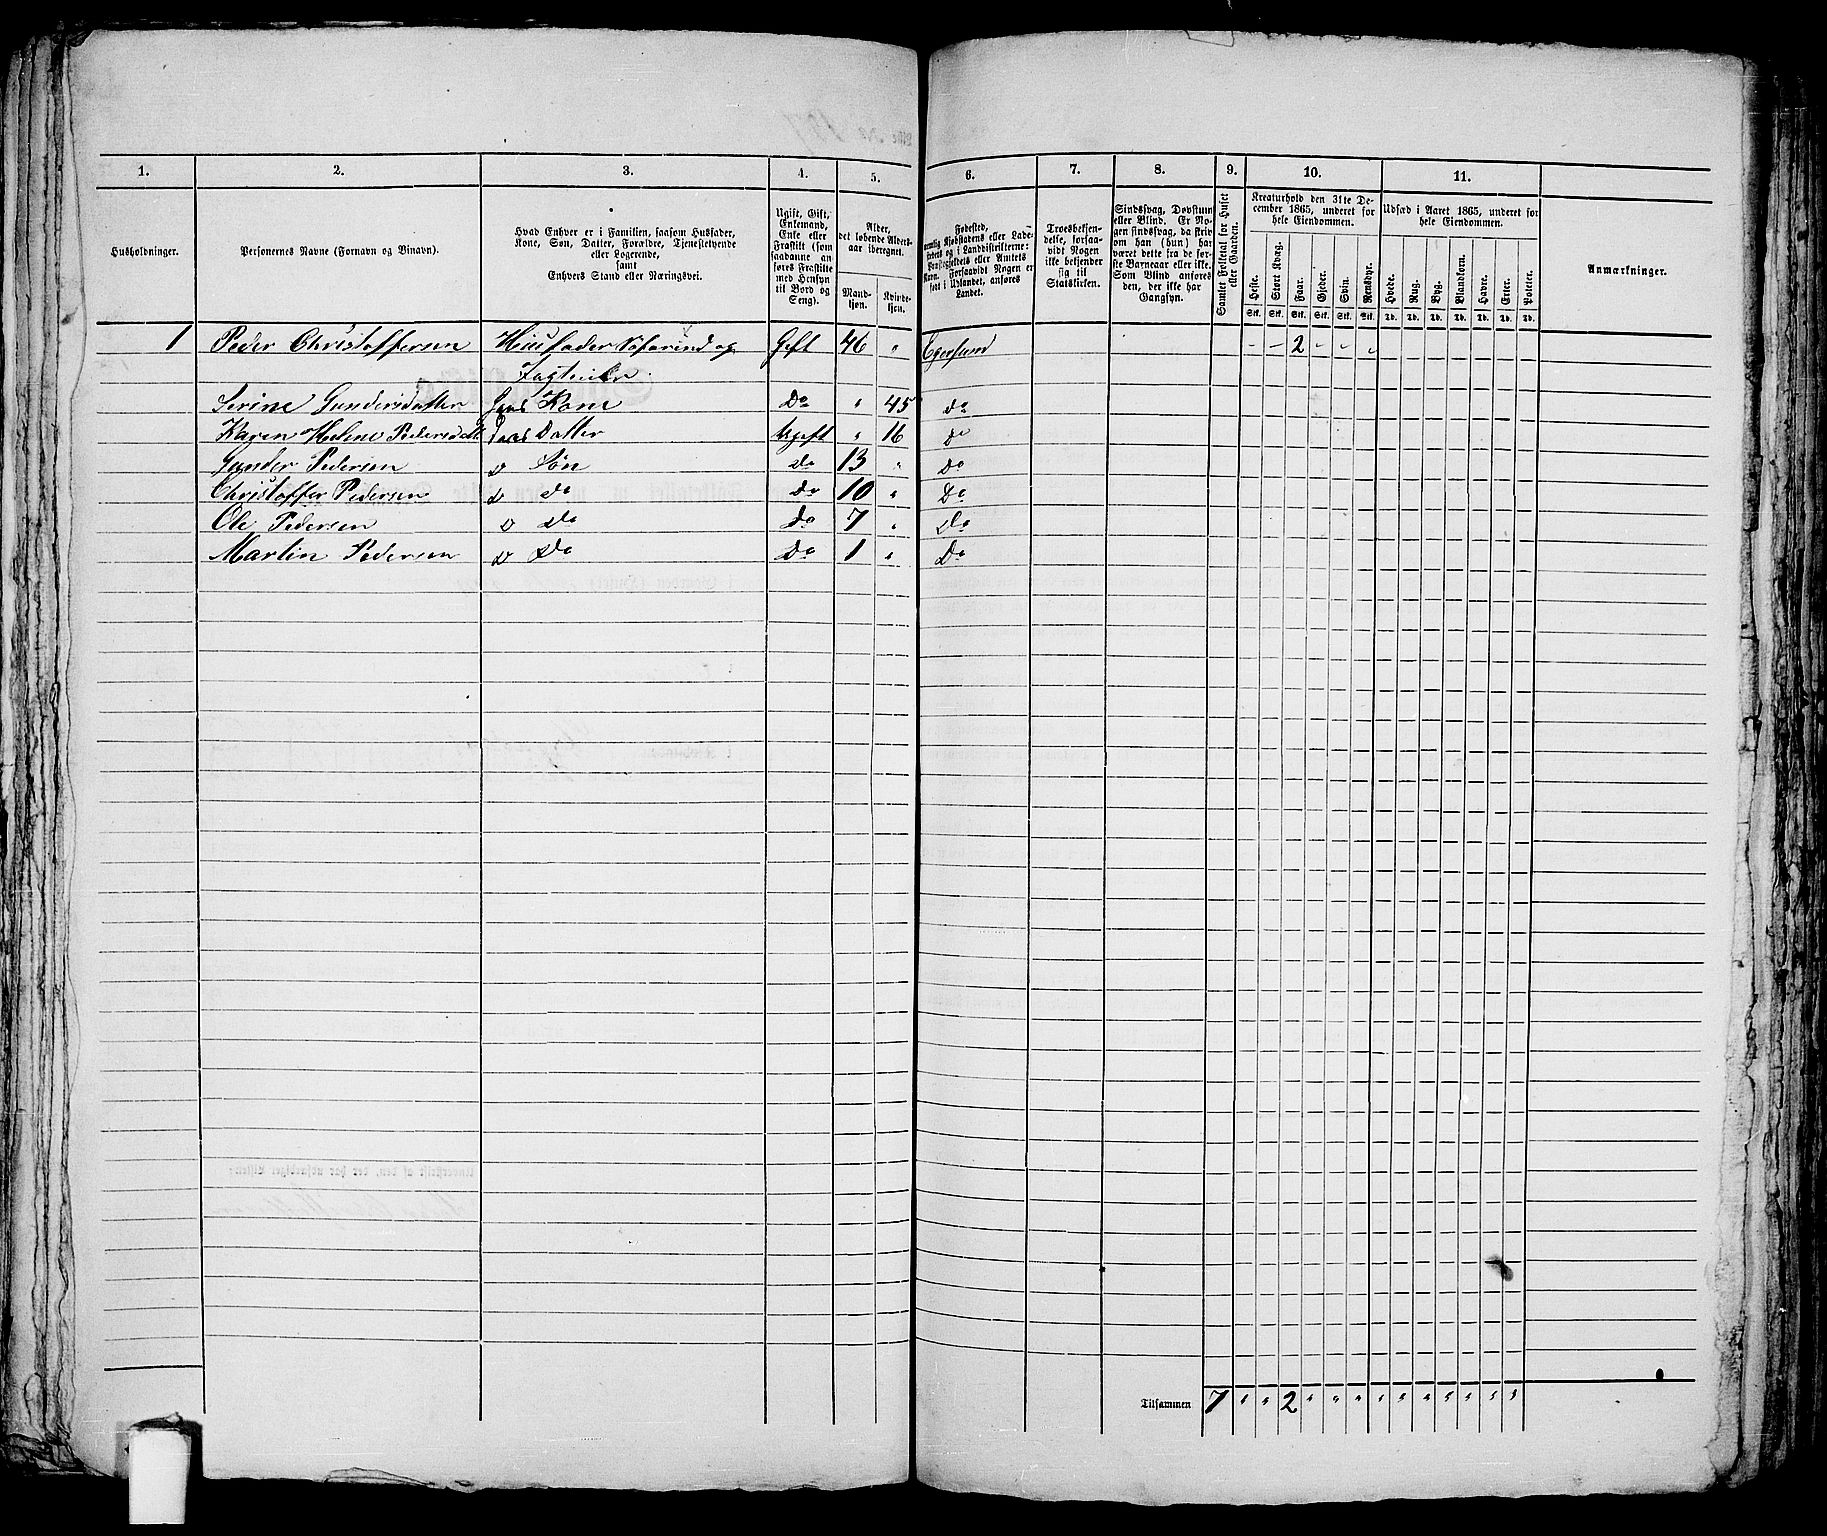 1.
2.
3.
4.
5.
6.
7.
8.
9.
10.
11.
Husholdninger.
Personernes Navne (Fornavn og Binavn).
Hvad Enhver er i Familien, saasom Husfader,
Kone, Søn, Datter, Forældre, Tjenestetyende
eller Logerende,
samt
Enhvers Stand eller Næringsvei.
Ugift, Gift,
Enkemand,
Enke eller
Fraskilt (som
saadanne an-
føres Fraskilte
med Hensyn
til Bord og
Seng).
Alder,
det løbende Alders-
aar iberegnet.
Mand-
kjøn.
Kvinde-
kjøn.
Fødested,
nemlig Kjøbstadens eller Lade-
stedets og i Landdistrikterne:
Præstegjeldets eller Amtets
Navn. Forsaavidt Nogen er
født i Udlandet, anføres
Landet.
Troesbekjen-
delse, forsaa-
vidt Nogen
ikke bekjender
sig til
Statskirken.
Sindssvag, Døvstum
eller Blind. Er No-
gen sindssvag, da skriv
om han (hun) har
været dette fra de før-
ste Barneaar eller ikke.
Som Blind anføres
den, der ikke har
Gangsyn.
Samlet Folketal for Huset
eller Gaarden.
Kreaturhold den 31te De-
cember 1865, underet for
hele Eiendommen.
Heste. Stort Kvæg. Faar. Gjeder. Svin. Rensdyr.
Stk. Stk. Stk. Stk. Stk. Stk.
Udsæd i Aaret 1865, underet for
hele Eiendommen.
Hvede. Rug. Byg. Blandkorn. Havre. Erter. Poteter.
Td. Td. Td. Td. Td. Td. Td.
Anmærkninger.
1 Peder Christoffersen Huusfader Søfarind og Gift 46 " Egersund - - 2 - - "
Jagteier.
Serine Gundersdatter Hans Kone Do " 45 do
Karen Helene Pedersdatt Datter Ugift " 16 do
Gunder Pedersen o Søn do 13 " Do
Christoffer Pedersen o do Do 10 " Do
Ole Pedersen o do Do 7 " Do
Martin Pedersen o Do Do 1 " Do
Tilsammen 7 " " 2 " " " " " " " " " "